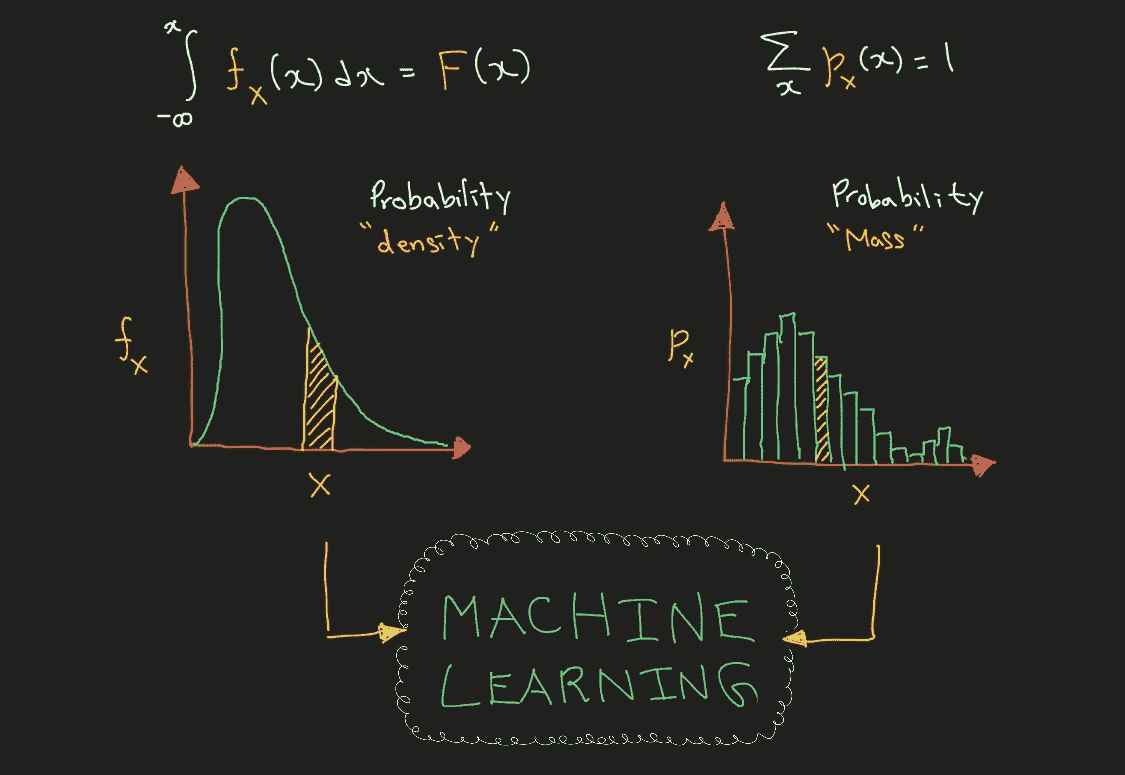 ∫_{-∞}^{x} f_X(x) dx = F(x)
∑_x p_x(x) = 1
Probability
"density"
f_X
X
Probability
"Mass"
P_x
X
MACHINE
LEARNING